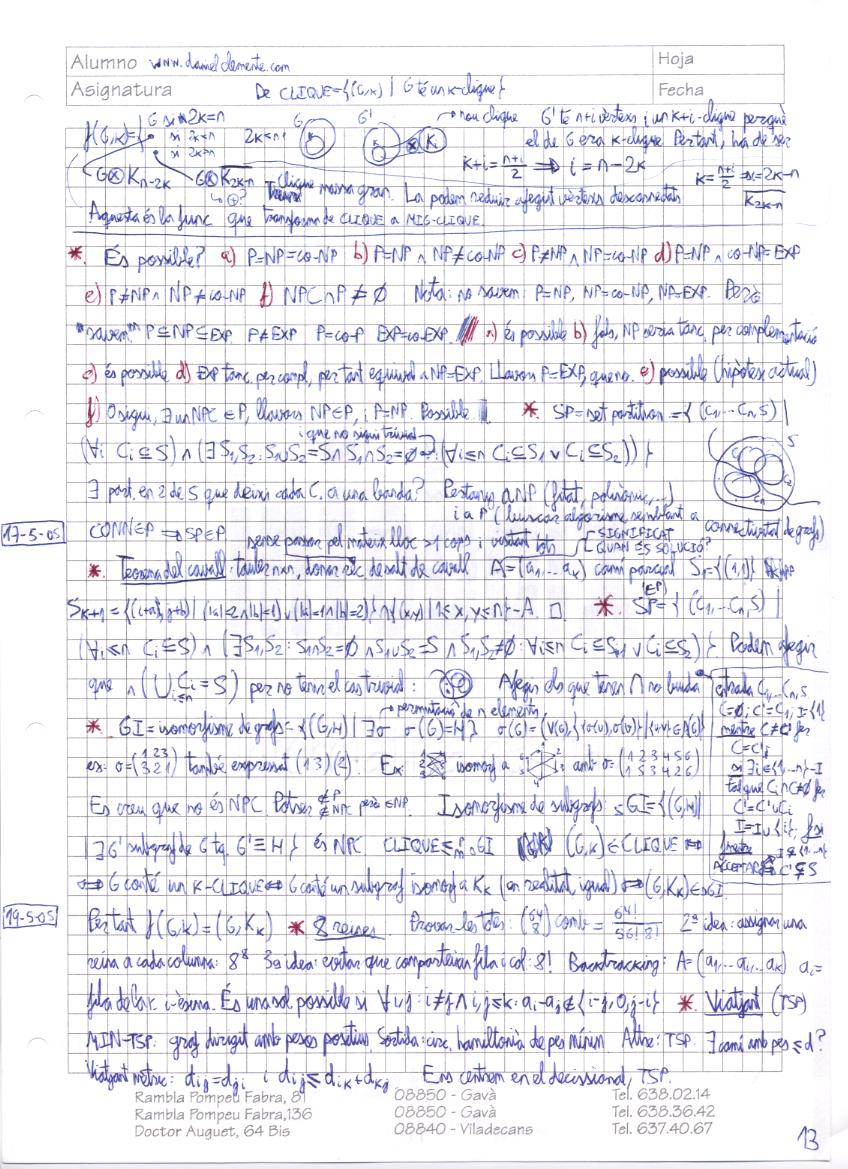 Alumno www.danielclemente.com Hoja
Asignatura De CLIQUE={(G,k) | G té un k-clique} Fecha
f(G,k)={ G si 2k=n G G' → nou clique G' té n+i vèrtexs i un k+i-clique perquè
si 2k<n 2k<n
si 2k>n el de G era k-clique Pertant, ha de ser
G⊗K_{n-2k} G⊗K_{2k-n} k+i=(n+i)/2 ⟹ i=n-2k k=(n+i)/2 ⟹ i=2k-n
Clique massa gran. La podem reduir afegint vèrtexs desconnectats K_{2k-n}
Aquesta és la func que transforma de CLIQUE a MIG-CLIQUE.
*. És possible? a) P=NP=co-NP b) P=NP ∧ NP≠co-NP c) P≠NP ∧ NP=co-NP d) P=NP ∧ co-NP=EXP
e) P≠NP ∧ NP≠co-NP f) NPC∩P≠∅ Nota: no sabem: P=NP, NP=co-NP, NP=EXP. Però
"sabem" P⊆NP⊆EXP P≠EXP P=co-P EXP=co-EXP a) és possible b) fals, NP seria tanc. per complementació
c) és possible d) EXP tanc. per compl, per tant equival a NP=EXP. Llavors P=EXP, que no. e) possible (hipòtesi actual)
f) O sigui, ∃ un NPC ∈P, llavors NP∈P, i P=NP. Possible. *. SP=set partition={ (C₁...Cn,S) |
i que no sigui trivial
(∀i Ci⊆S) ∧ (∃S₁,S₂: S₁∪S₂=S ∧ S₁∩S₂=∅ (∀i≤n Ci⊆S₁ ∨ Ci⊆S₂)) }
∃ part. en 2 de S que deixi cada Ci a una banda? Pertany a NP (fitat, polinòmic,...)
i a P (buscar algorisme semblant a connectivitat de grafs)
17-5-05 CONN∈P ⟹ SP∈P sense passar pel mateix lloc >1 cops i visitant tots SIGNIFICAT
QUAN ÉS SOLUCIÓ?
*. Teorema del cavall: tauler n×n, donar séc de salt de cavall A=(a₁...ak) camí parcial S₁={(1,1)}
S_{k+1}={(i+a, j+b) | (|a|=2∧|b|=1)∨(|a|=1∧|b|=2)} ∩{(x,y) | 1≤x, y≤n}-A. □. *. SP={ (C₁,...Cn,S) |
(∈P)
(∀i≤n Ci⊆S) ∧ (∃S₁,S₂: S₁∩S₂=∅ ∧ S₁∪S₂=S ∧ S₁,S₂≠∅: ∀i≤n Ci⊆S₁ ∨ Ci⊆S₂) }. Podem afegir
que ∧ (⋃_{i≤n} Ci=S) per no tenir el cas trivial: Afegim els que tenen ∩ no buida
entrada C₁,...Cn,S
C=∅; C'=C₁; I={1}
mentre C≠C' fer
C=C';
si ∃i∈{1...n}-I
tal que Ci∩C≠∅ fer
C'=C'∪Ci
I=I∪{i}; fsi
fmentre
ACCEPTAR C'⊊S
→ permutació de n elements
*. GI=isomorfisme de grafs={(G,H) | ∃σ σ(G)=H} σ(G)=(V(G),{{σ(u),σ(v)} | {u,v}∈A(G)}
ex: σ=(1 2 3 / 3 2 1) també expressat (1 3)(2). Ex: isomorf a amb σ=(1 2 3 4 5 6 / 1 5 3 4 2 6)
Es creu que no és NPC Potser ∉P ∉NPC però ∈NP. Isomorfisme de subgrafs: SGI={(G,H)|
| ∃G' subgraf de G tq. G'≡H } és NPC CLIQUE ≤ᵖₘ SGI (G,k)∈CLIQUE ⟺
⟺ G conté un k-CLIQUE ⟺ G conté un subgraf isomorf a Kk (en realitat, igual) ⟺ (G,Kk)∈SGI.
19-5-05 Per tant f(G,k)=(G,Kk) * 8 reines. Provar-les totes: (64 8) comb = 64!/(56!·8!) 2ª idea: assignar una
reina a cada columna: 8⁸ 3ª idea: evitar que comparteixin fila i col: 8! Backtracking: A=(a₁,...ai,...ak) ai=
fila de la r. i-èsima. És una sol possible si ∀i,j: i≠j ∧ i,j≤k: ai-aj∉{i-j,0,j-i} *. Viatjant (TSP)
MIN-TSP: graf dirigit amb pesos positius. Sortida: circ. hamiltonià de pes mínim Altre: TSP. ∃ camí amb pes ≤d?
Viatjant mètric: dij=dji i dij≤dik+dkj. Ens centrem en el decissional, TSP.
Rambla Pompeu Fabra, 81 08850 - Gavà Tel. 638.02.14
Rambla Pompeu Fabra,136 08850 - Gavà Tel. 638.36.42
Doctor Auguet, 64 Bis 08840 - Viladecans Tel. 637.40.67
13